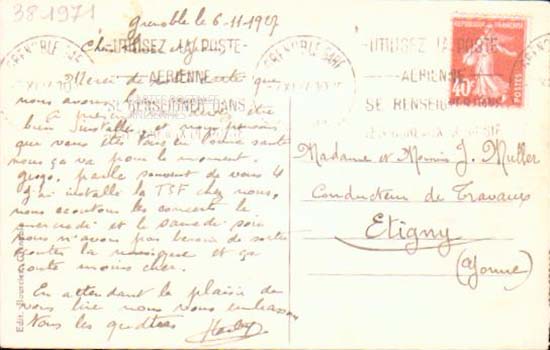 38-1971
Grenoble le 6-11-1927
UTILISEZ LA POSTE
AERIENNE
SE RENSEIGNER DANS
Merci de que
nous avons
A présent être
bien installés, et nous pensons
que vous êtes tous en bonne santé
nous ça va pour le moment.
gogo. parle souvent de vous 4
j'ai installé la TSF chez nous,
nous écoutons les concerts le
mercredi et le samedi soir
nous n'avons pas besoin de sortir
écouter la musique et ça
coute moins cher.
En attendant le plaisir de
vous lire nous vous embrassons
Tous les quatres
GRENOBLE GARE
UTILISEZ LA POSTE
AERIENNE
SE RENSEIGNER DANS
REPUBLIQUE FRANÇAISE
40c
POSTES
Madame et Monsieur J. Muller
Conducteur de Travaux
Etigny
(Yonne)
Edit.